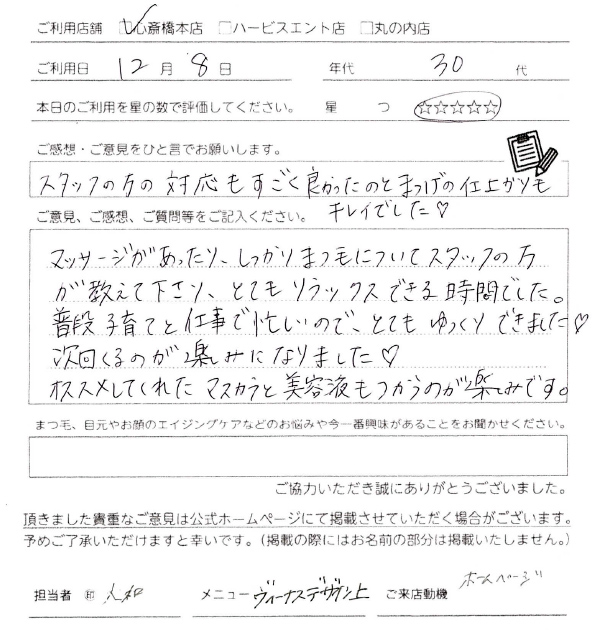 ご利用店舗 ☑心斎橋本店 □ハービスエント店 □丸の内店
ご利用日 12月 8日 年代 30 代
本日のご利用を星の数で評価してください。 星 つ ☆☆☆☆☆
ご感想・ご意見をひと言でお願いします。
スタッフの方の対応もすごく良かったのとまつげの仕上がりも
キレイでした♡
ご意見、ご感想、ご質問等をご記入ください。
マッサージがあったり、しっかりまつ毛についてスタッフの方
が教えて下さり、とてもリラックスできる時間でした。
普段子育てと仕事で忙しいので、とてもゆっくりできました♡
次回くるのが楽しみになりました♡
オススメしてくれたマスカラと美容液もつかうのが楽しみです。
まつ毛、目元やお顔のエイジングケアなどのお悩みや今一番興味があることをお聞かせください。
ご協力いただき誠にありがとうございました。
頂きました貴重なご意見は公式ホームページにて掲載させていただく場合がございます。
予めご了承いただけますと幸いです。（掲載の際にはお名前の部分は掲載いたしません。）
担当者 ㊞ メニュー ヴィーナスデザイン上 ご来店動機 ホームページ